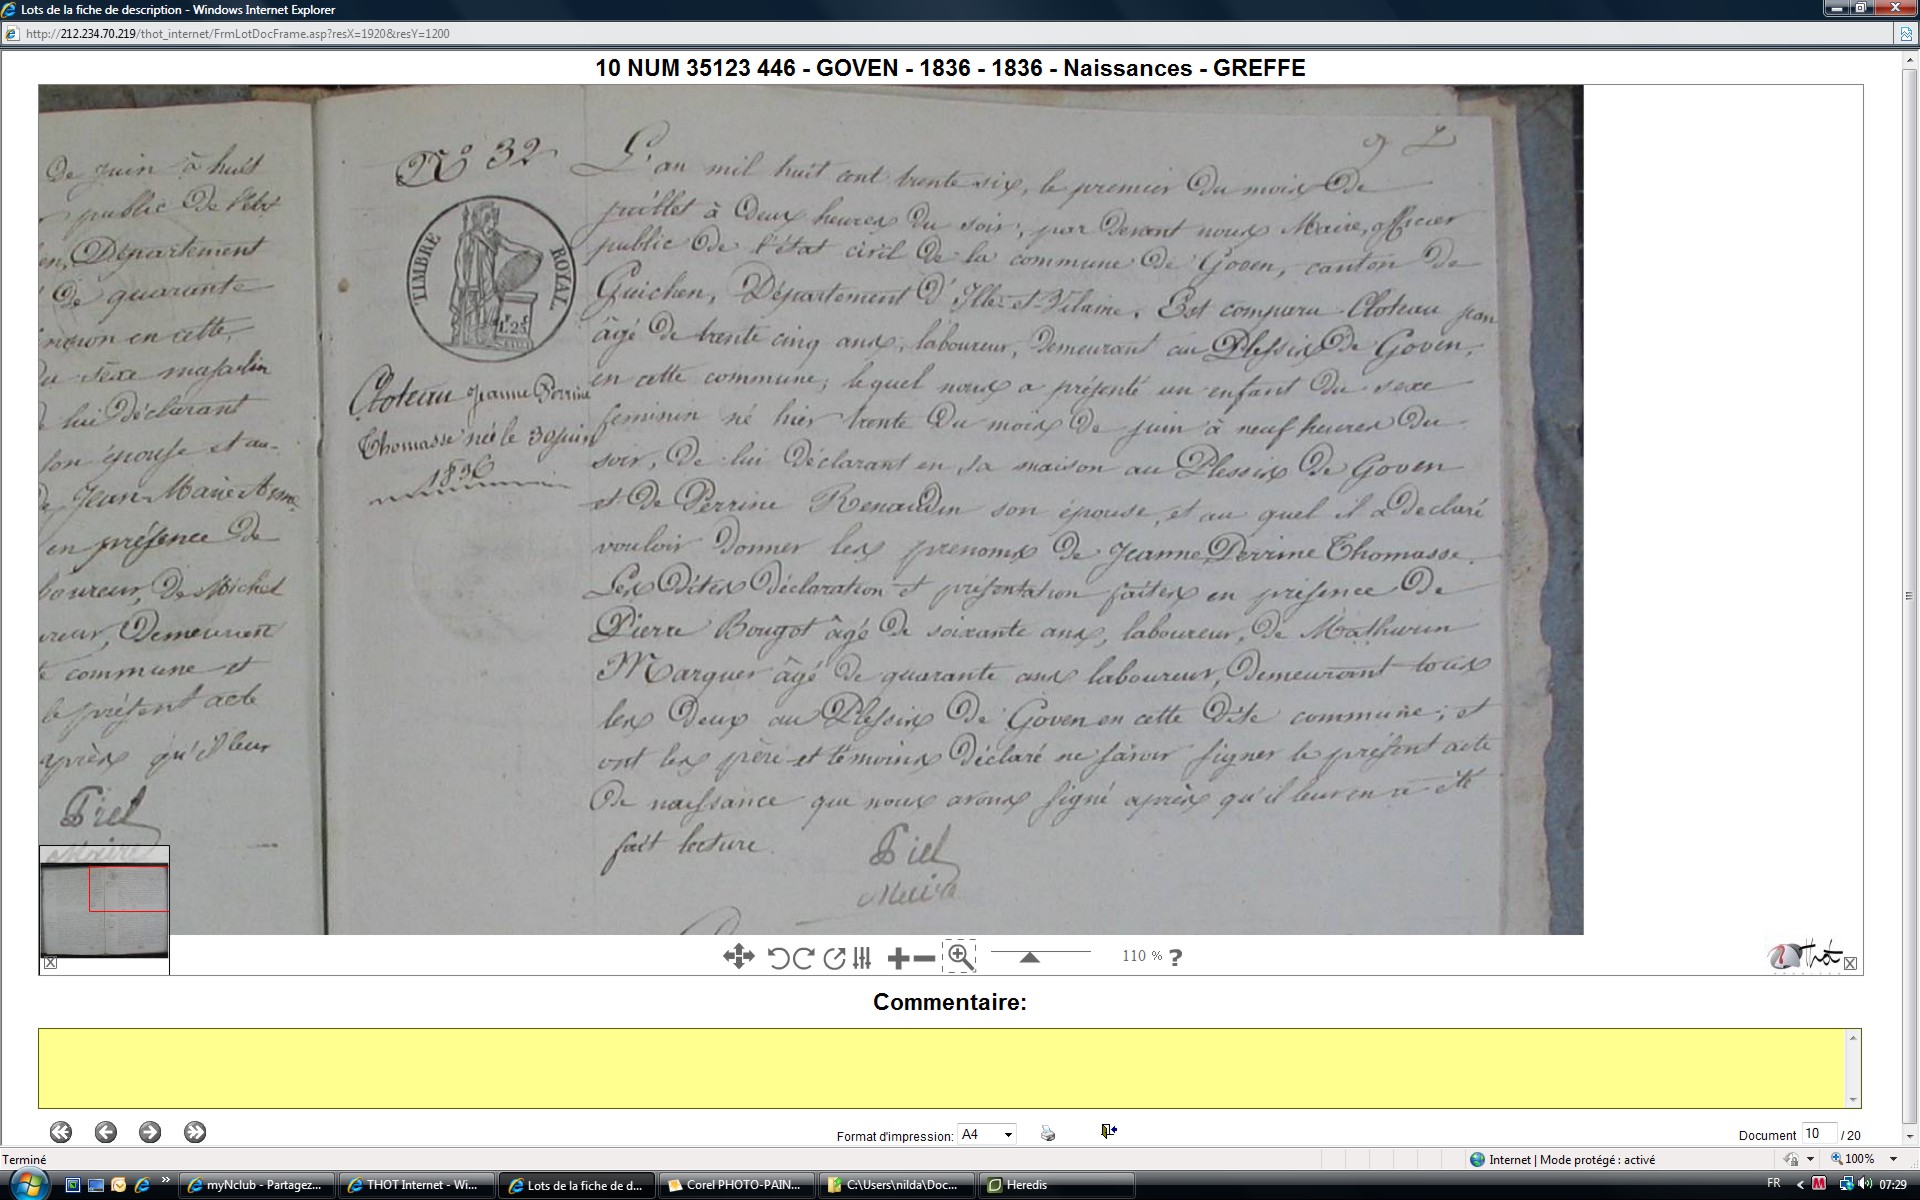 Lots de la fiche de description - Windows Internet Explorer
http://212.234.70.219/thot_internet/FrmLotDocFrame.asp?resX=1920&resY=1200
10 NUM 35123 446 - GOVEN - 1836 - 1836 - Naissances - GREFFE
de juin à huit
public de l'état
en, Département
de quarante
en cette
du sexe masculin
lui déclarant
son épouse et au-
de Jean Marie
en présence de
boureur, de Michel
reur, demeurant
commune et
le présent acte
après qu'il leur
Piel
Maire
N° 32
TIMBRE ROYAL
1.25
Cloteau Jeanne Perrine
Thomasse née le 30 juin
1836
L'an mil huit cent trente six, le premier du mois de
juillet à deux heures du soir, par devant nous Maire, officier
public de l'état civil de la commune de Goven, canton de
Guichen, Département d'Ille-et-Vilaine. Est comparu Cloteau jean
âgé de trente cinq ans, laboureur, demeurant au Plessix de Goven,
en cette commune; lequel nous a présenté un enfant du sexe
feminin né hier trente du mois de juin à neuf heures du
soir, de lui déclarant en sa maison au Plessix de Goven
et de Perrine Renaudin son épouse, et au quel il a déclaré
vouloir donner les prenoms de Jeanne Perrine Thomasse.
Les dites déclaration et présentation faites en présence de
Pierre Bougot âgé de soixante ans, laboureur, de Mathurin
Marquer âgé de quarante ans laboureur, demeurant tous
les deux au Plessix de Goven en cette dite commune; et
ont les père et témoins déclaré ne savoir signer le présent acte
de naissance que nous avons signé après qu'il leur en a été
fait lecture.
Piel
Maire
110 % ?
Thot
Commentaire:
Format d'impression: A4
Document 10 / 20
Terminé
Internet | Mode protégé : activé
100%
myNclub - Partagez...
THOT Internet - Wi...
Lots de la fiche de d...
Corel PHOTO-PAIN...
C:\Users\nilda\Doc...
Heredis
FR
07:29